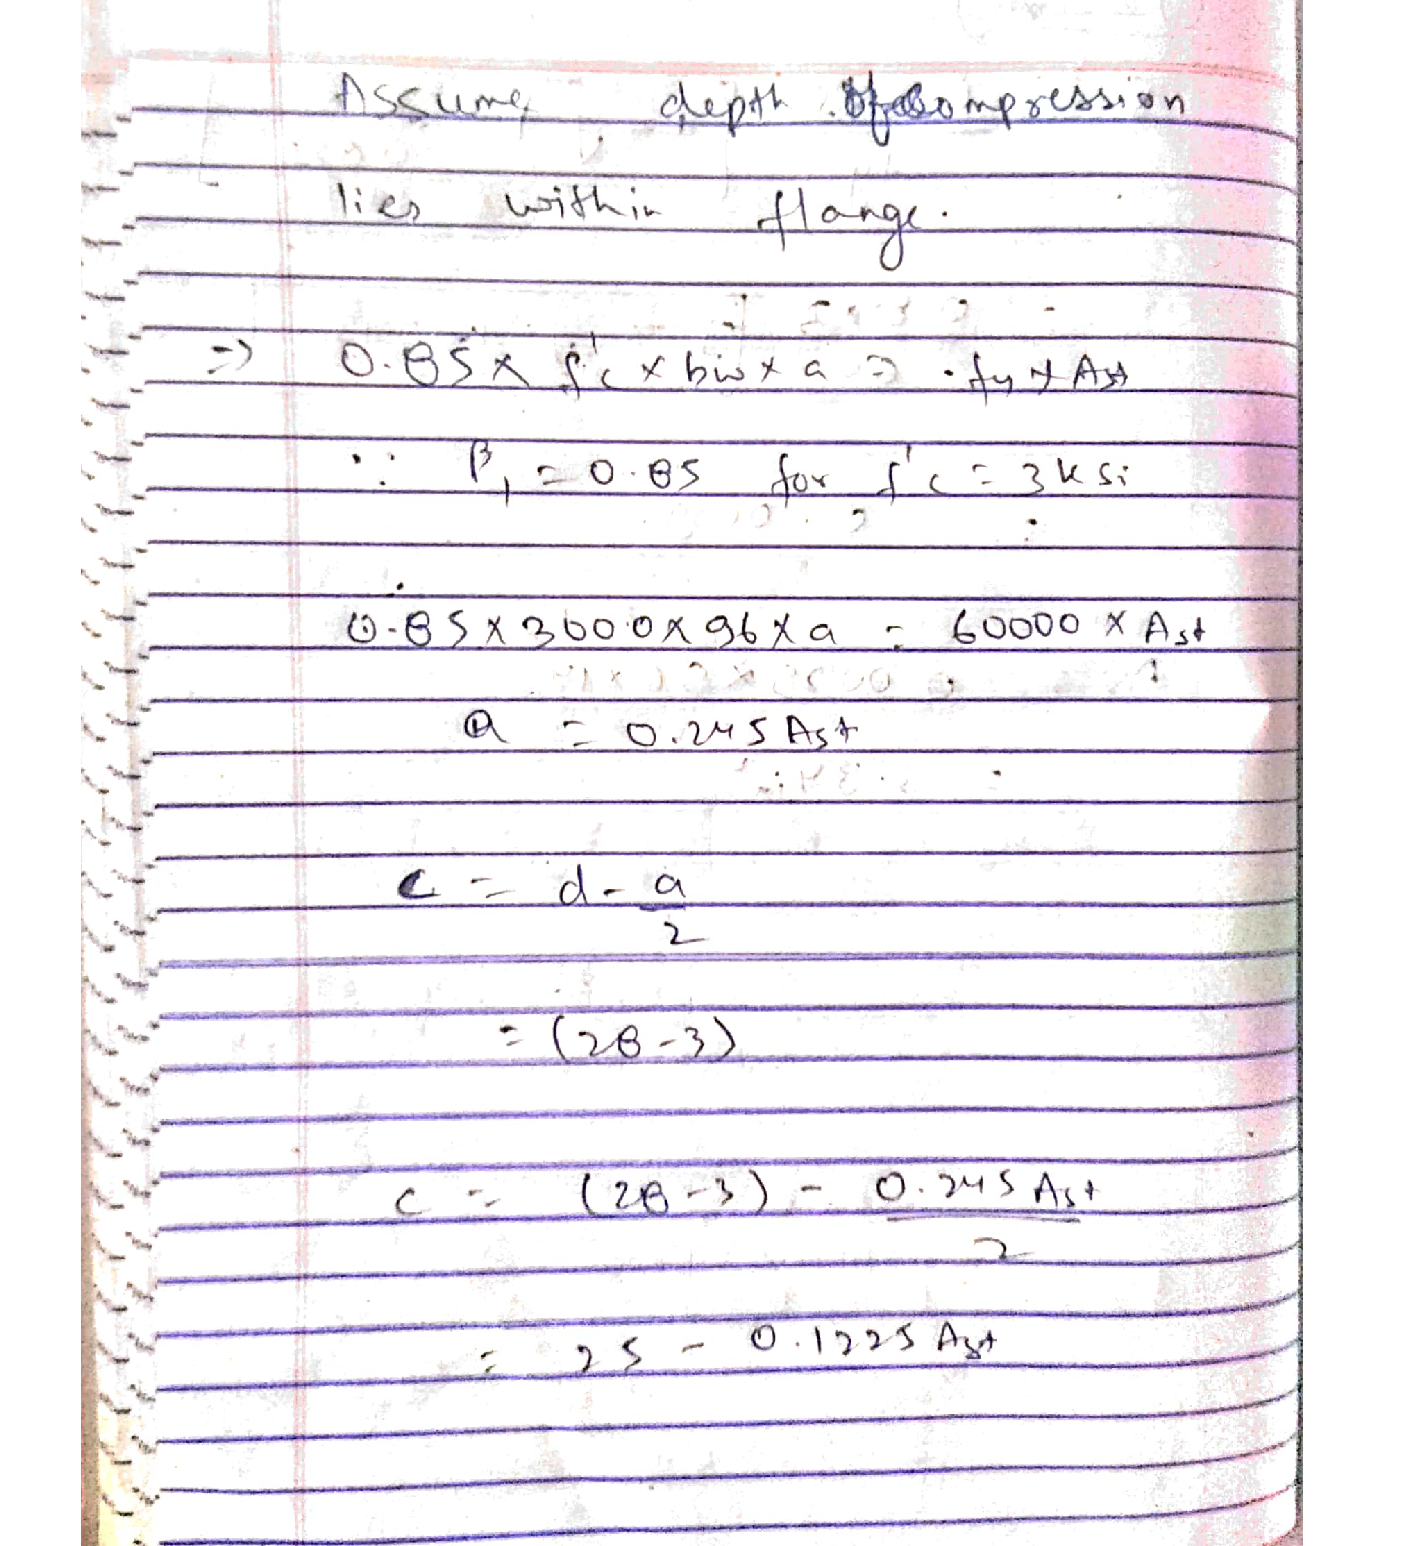 Assume depth of compression
lies within flange.
=> 0.85 x f'c x bw x a = fy x Ast
∵ β1 = 0.85 for f'c = 3 ksi
0.85 x 3000 x 96 x a = 60000 x Ast
a = 0.245 Ast
c = d - a/2
= (28-3)
c = (28-3) - 0.245 Ast/2
= 25 - 0.1225 Ast